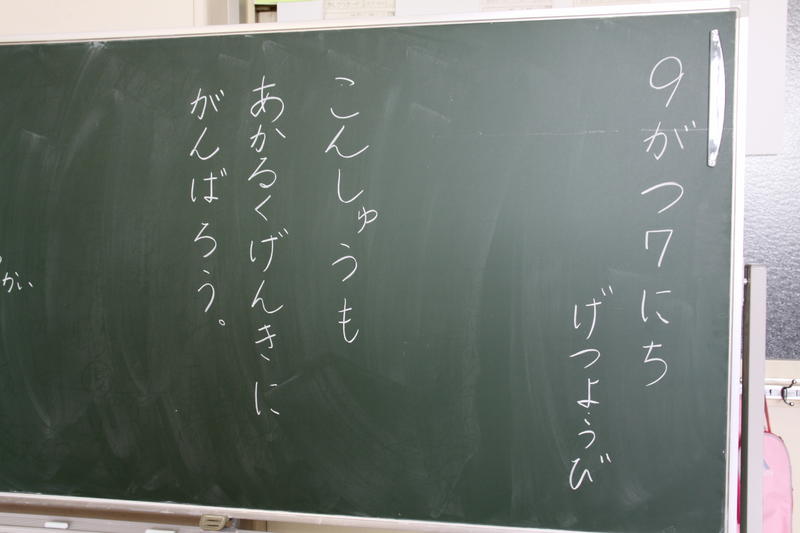 9がつ7にち
げつようび
こんしゅうも
あかるくげんきに
がんばろう。
かい